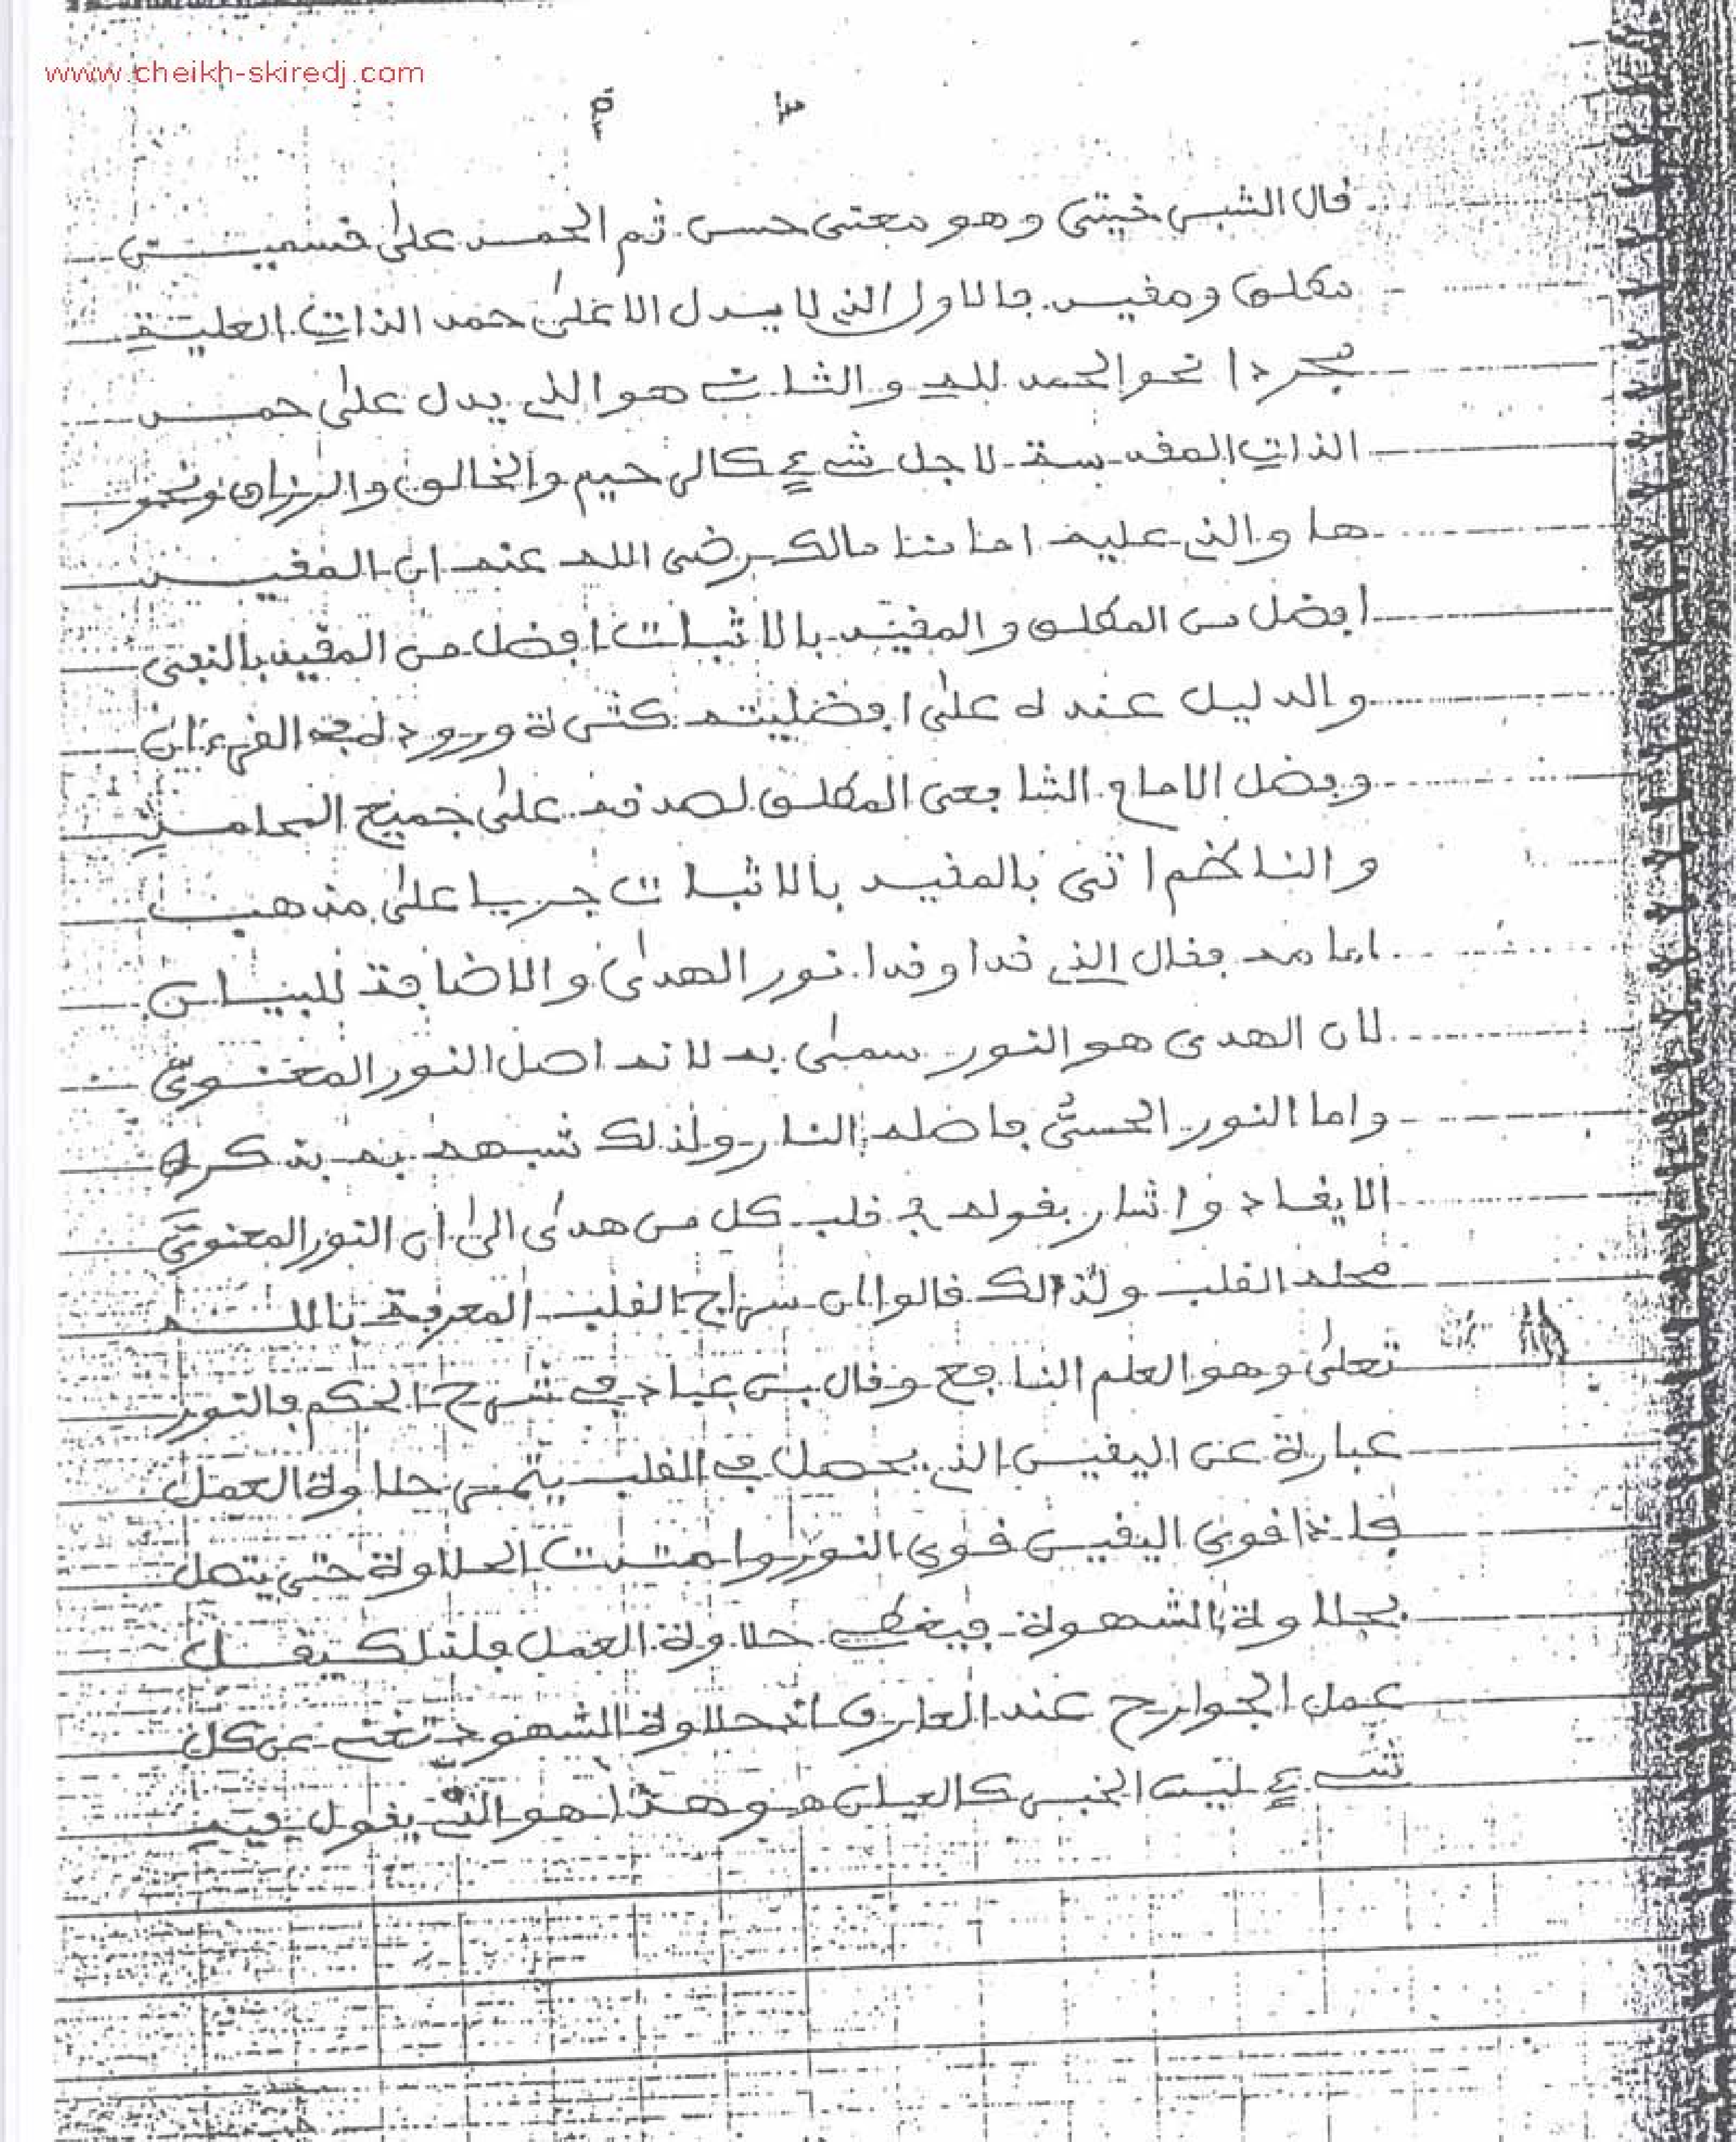 www.cheikh-skiredj.com
قال الشبرخيتي وهو معنى حسن ثم الحمد على قسمين
مطلق ومقيد فالاول الذي لا يدل الا على حمد الذات العلية
مجردا نحو الحمد لله والثاني هو الذي يدل على حمد
الذات المقدسة لاجل شيء كالرحيم والخالق والرزاق ونحو
ها والذي عليه امامنا مالك رضى الله عنه ان المقيد
افضل من المطلق والمقيد بالاثبات افضل من المقيد بالنفى
والدليل عنده على افضليته كثرة وروده في القرءان
وفضل الامام الشافعى المطلق لصدقه على جميع المحامد
والناظم اتى بالمقيد بالاثبات جريا على مذهب
امامه فقال الذي قد اوقدا نور الهدى والاضافة للبيان
لان الهدى هو النور سمى به لانه اصل النور المعنويّ
واما النور الحسيّ فاصله النار ولذلك شبهه به بذكره
الايقاد واشار بقوله في قلب كل من هدى الى ان النور المعنويّ
محله القلب ولذالك قالوا ان سراج القلب المعرفة بالله
تعلى وهو العلم النافع وقال بن عباد في شرح الحكم فالنور
عبارة عن اليقين الذي يحصل في القلب يثمر حلاوة العمل
فاذا قوي اليقين قوي النور وامتدت الحلاوة حتى يتصل
بحلاوة الشهوة فيغطي حلاوة العمل فلذلك يقل
عمل الجوارح عند العارف اذ حلاوة الشهود تغني عن كل
شيء ليس الخبر كالعيان هو وهذا هو الذي يقول فيه